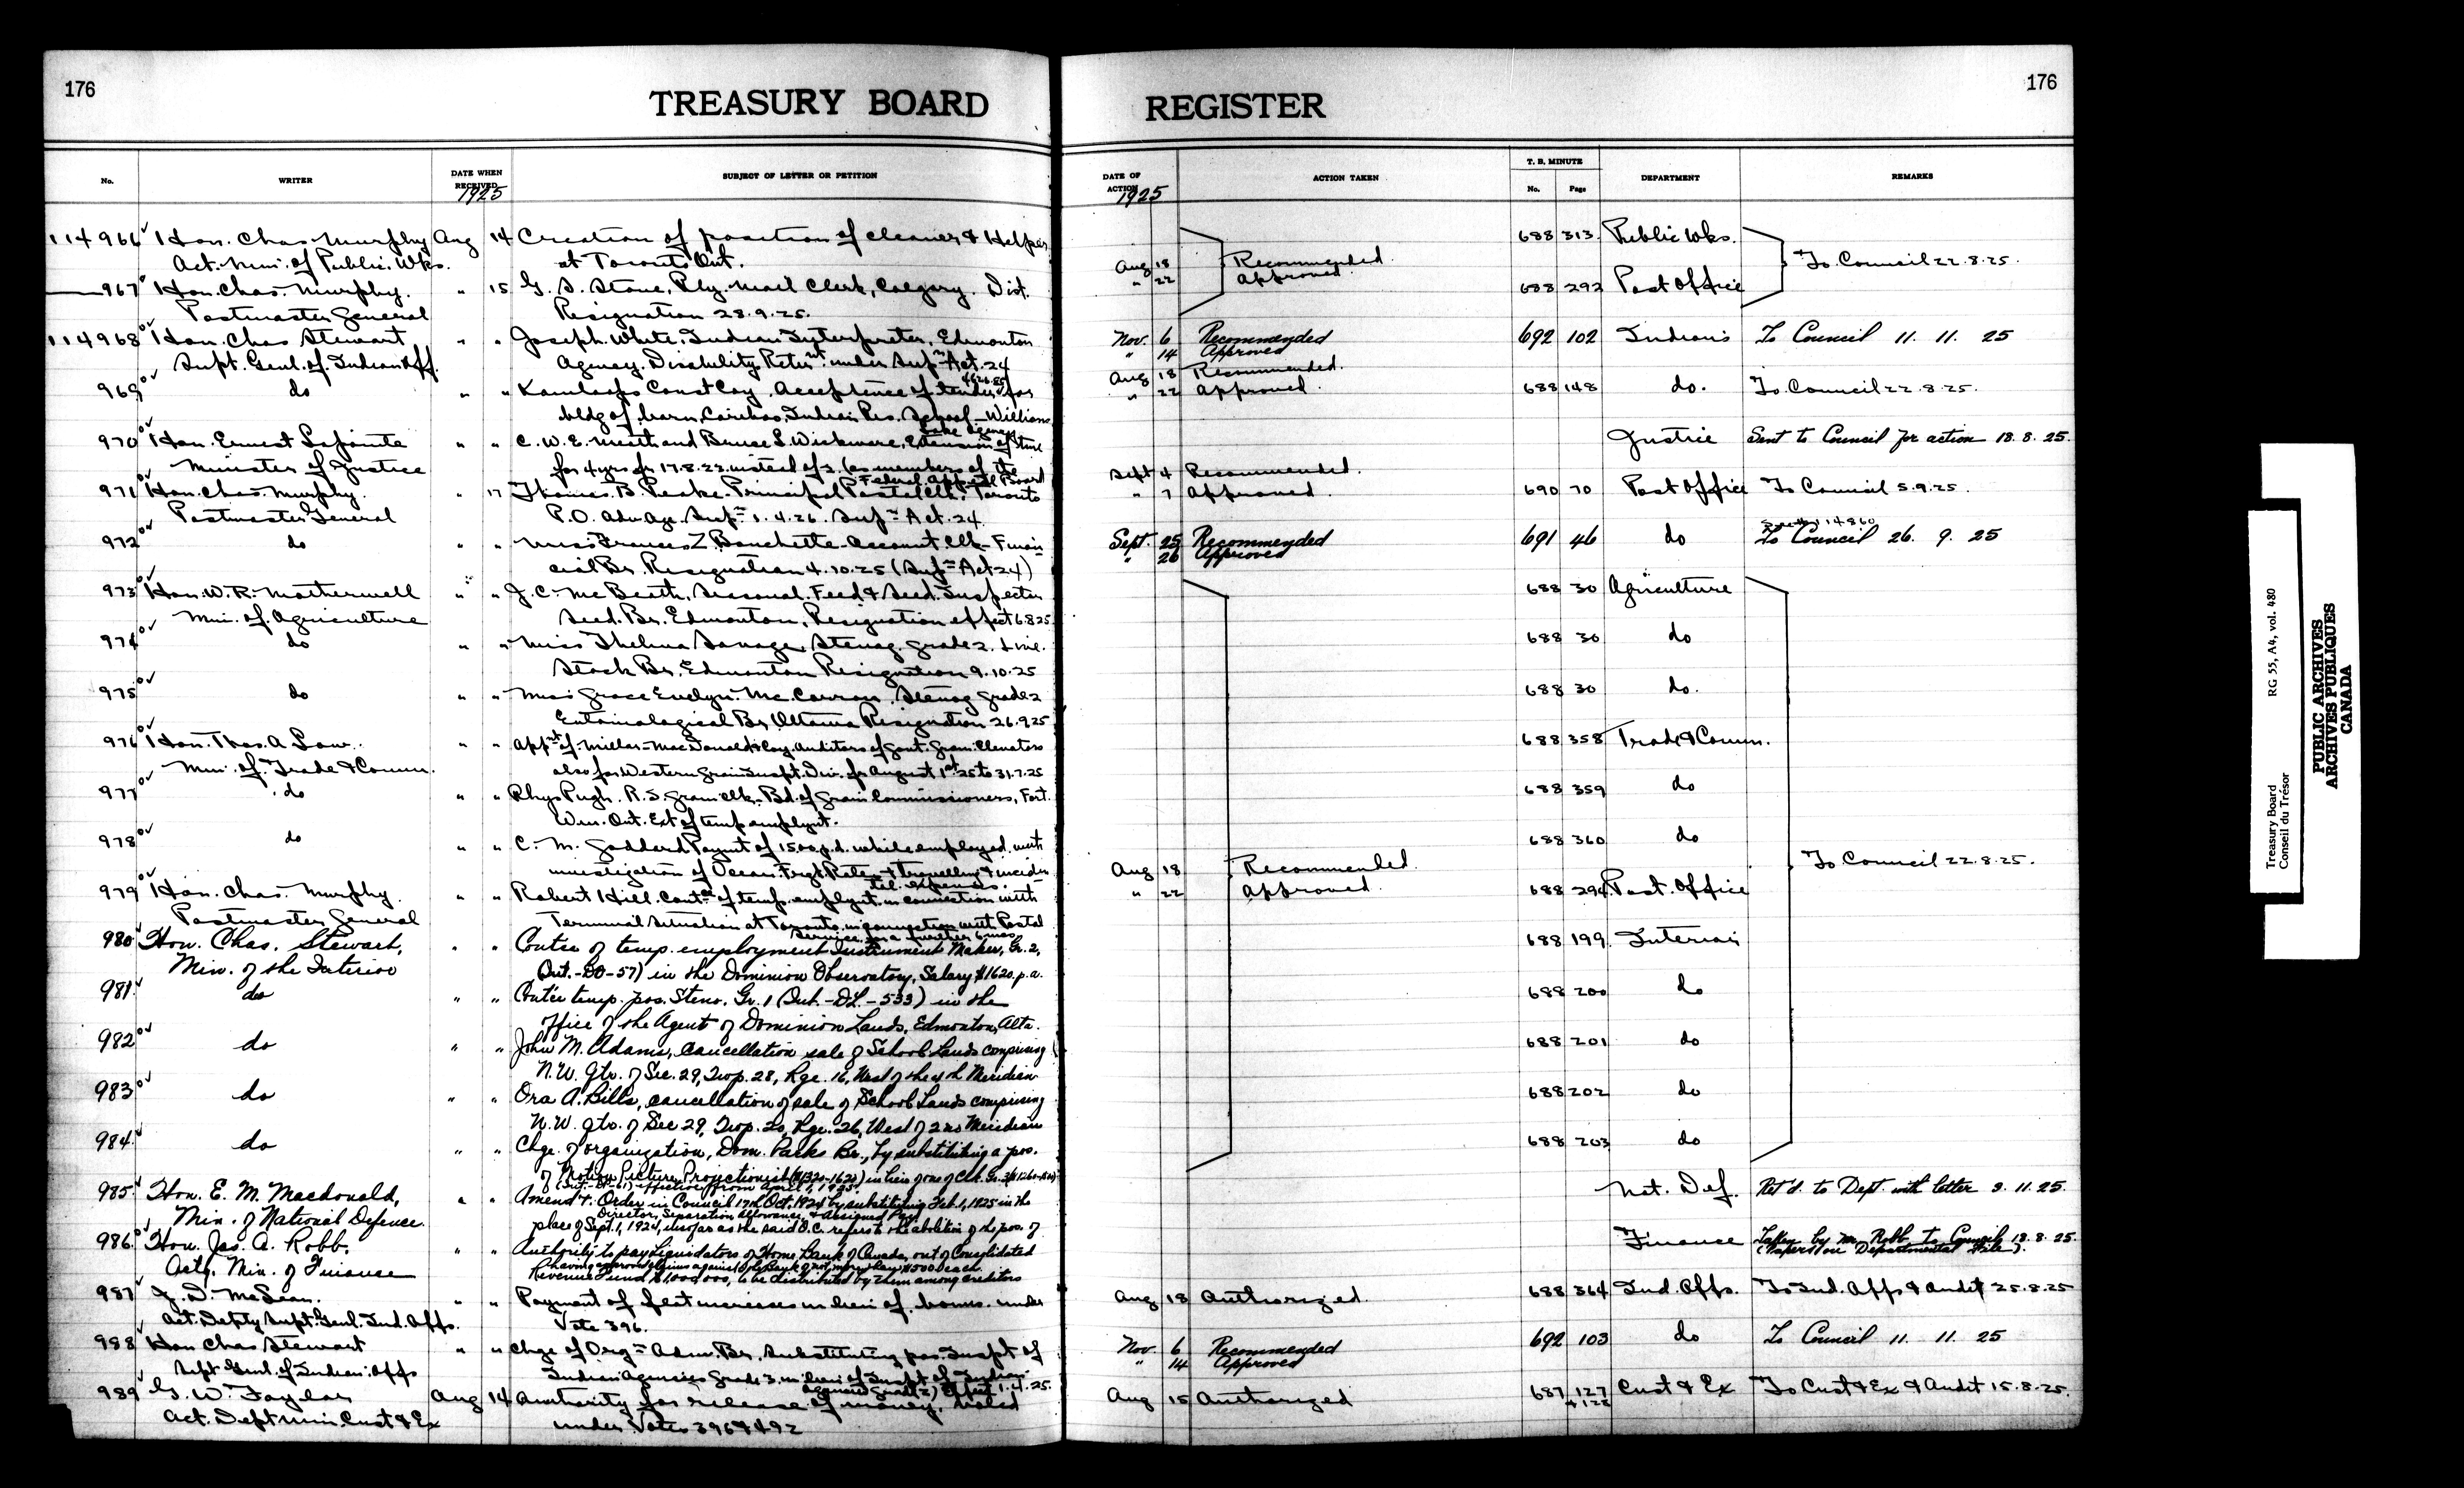 176
TREASURY BOARD
No.
WRITER
DATE WHEN RECEIVED
1925
SUBJECT OF LETTER OR PETITION
114966 Hon. Chas. Murphy Aug 14 Creation of position of cleaner & Helper
Act. Min. of Public Wks. at Toronto Ont.
967 Hon. Chas. Murphy. " 15 G. S. Stone, Rly. Mail Clerk, Calgary Dist.
Postmaster General Resignation 28.9.25.
114968 Hon. Chas Stewart " " Joseph White, Indian Interpreter, Edmonton
Supt. Genl. of Indian Aff. Agency. Disability Retnt. under Supn Act. 24
969 do " " Kamloops Const Coy. Acceptance of tender for
bldg of barn, Cariboo Indian Res. School - Williams
Lake Agency
970 Hon. Ernest Lapointe " " C. W. E. Meath and Bruce L. Wickware, Extension of time
Minister of Justice for 4 yrs fr 17.8.22 instead of 2 (as members of the
Federal Appeal Board
971 Hon. Chas. Murphy. " 17 Thomas B. Peake. Principal Postal Clk. Toronto
Postmaster General P.O. Adv. Age. Supn 1.4.26. Supn Act. 24.
972 do " " Miss Frances Z. Bouchette Account. Clk - Finan-
cial Br. Resignation 4.10.25 (Supn Act 24)
973 Hon. W. R. Motherwell " " J. C. McBeath, Seasonal Feed & Seed Inspector
Min. of Agriculture Seed Br. Edmonton, Resignation effect 6.8.25
974 do " " Miss Thelma Savage, Stenog. grade 2. Live
Stock Br. Edmonton Resignation 9.10.25
975 do " " Miss Grace Evelyn Mc. Stenog grade 2
Entomological Br. Ottawa Resignation 26.9.25
976 Hon. Thos. A Low. " " Appnt of Millar-MacDonald & Coy. Auditors of Govt. Grain Elevators
Min. of Trade & Comm. also for Western Grain Inspt. Div. fr August 1st 25 to 31.7.25
977 do " " Rhys Pugh. R.S. Grain Clk. Bd. of Grain Commissioners, Fort
Wm. Ont. Ext of temp employnt.
978 do " " C. M. Goddard Paymt of 15.00 p.d. while employed with
investigation of Ocean Frgt Rates & travelling & inciden-
tal expenses.
979 Hon. Chas. Murphy. " " Robert Hill. Contce of temp. emplynt. in connection with
Postmaster General Terminal situation at Toronto in connection with Postal
Service for a further 6 mos.
980 Hon. Chas. Stewart, " " Contce of temp. employment Instrument Maker, Gr. 2,
Min. of the Interior (Int.-DO-57) in the Dominion Observatory, Salary $1620. p.a.
981 do " " Contce temp. pos. Steno. Gr. 1 (Int.-DL-533) in the
office of the Agent of Dominion Lands, Edmonton, Alta.
982 do " " John M. Adams, cancellation sale of School Lands comprising
N.W. qtr. of Sec. 29, Twp. 28, Rge. 16, West of the 4th Meridian
983 do " " Ora A. Bills, cancellation of sale of School Lands comprising
N.W. qtr. of Sec 29, Twp. 20, Rge. 26, West of 2nd Meridian
984 do " " Chge. of organization, Dom. Parks Br., by substituting a pos.
of Motion Picture Projectionist ($1320-1620) in lieu of one of Clk. Gr. 3
effective from April 1, 1925
985 Hon. E. M. Macdonald, " " Amendt. Order in Council 17th Oct. 1924 by substituting Feb. 1, 1925 in the
Min. of National Defence. Director, Separation Allowance, & Assigned Pay
place of Sept. 1, 1924, insofar as the said O.C. refers to the abolition of the pos. of
986 Hon. Jas. A. Robb. " " Authority to pay Liquidators of Home Bank of Canada, out of Consolidated
Actg. Min. of Finance having approved claims against the Bank of not more than $500 each
Revenue Fund $1,000,000, to be distributed by them among creditors
987 J. D. McLean. " " Payment of flat increases in lieu of bonus. under
Act. Depty Supt. Genl. Ind. Affs. Vote 396.
988 Hon Chas Stewart " " Chge of Orgn Adm. Br. Substituting pos. Inspt of
Supt Genl. of Indian Affs Indian Agencies Grade 3 in lieu of Inspt of Indian
Agencies Grade 2) Effect 1.4.25.
989 G. W. Taylor Aug 14 Authority for release of money, voted
Act. Dept Min. Cust & Ex under Votes 396 & 492
REGISTER
176
DATE OF ACTION
1925
ACTION TAKEN
T. B. MINUTE
No.
Page
DEPARTMENT
REMARKS
688 313 Public Wks.
Aug 18 Recommended. To Council 22.8.25.
" 22 Approved.
688 292 Post Office
Nov. 6 Recommended 692 102 Indians To Council 11. 11. 25
" 14 Approved
Aug 18 Recommended.
" 22 Approved. 688 148 do. To Council 22.8.25.
Justice Sent to Council for action 18.8.25.
Sept 4 Recommended.
" 7 Approved. 690 70 Post Office To Council 5.9.25.
Sept. 25 Recommended 691 46 do To Council 26. 9. 25
" 26 Approved
688 30 Agriculture
688 30 do
688 30 do.
688 358 Trade & Comm.
688 359 do
688 360 do
Aug 18 Recommended. To Council 22.8.25.
" 22 Approved. 688 294 Post. Office
688 199 Interior
688 200 do
688 201 do
688 202 do
688 203 do
Nat. Def. Ret'd. to Dept. with letter 3.11.25.
Finance Taken by Mr. Robb to Council 18.8.25.
(Papers on Departmental File).
Aug 18 Authorized. 688 364 Ind. Affs. To Ind. Affs & Audit 25.8.25
Nov. 6 Recommended 692 103 do To Council 11 11 25
" 14 Approved
Aug 15 Authorized 687 127 Cust & Ex To Cust & Ex & Audit 15.8.25.
& 128
Treasury Board RG 55, A4, vol. 480
Conseil du Trésor
PUBLIC ARCHIVES
ARCHIVES PUBLIQUES
CANADA